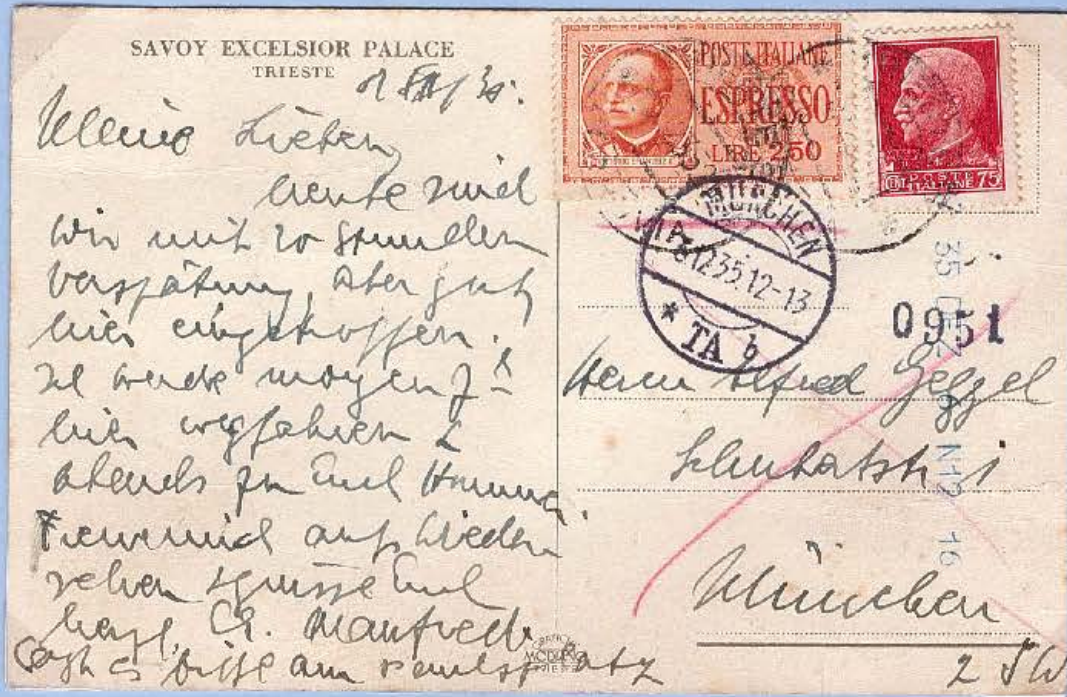 SAVOY EXCELSIOR PALACE
TRIESTE
Meine Lieben,
heute sind
wir mit 20 stunden
verspätung, aber gut
hier eingetroffen.
werde morgen
hier wegfahren &
abends zu Euch kommen.
Freue mich aufs Wieder
sehen & grüsse Euch
herzl. Manfred
bitte am
POSTE ITALIANE
ESPRESSO
LIRE 2,50
POSTE
ITALIANE 75
MÜNCHEN
12.35.12-13
* TA b
35 DEZ
N12 16
0951
Herrn Alfred
München
2 SW
MODIANO
TRIESTE